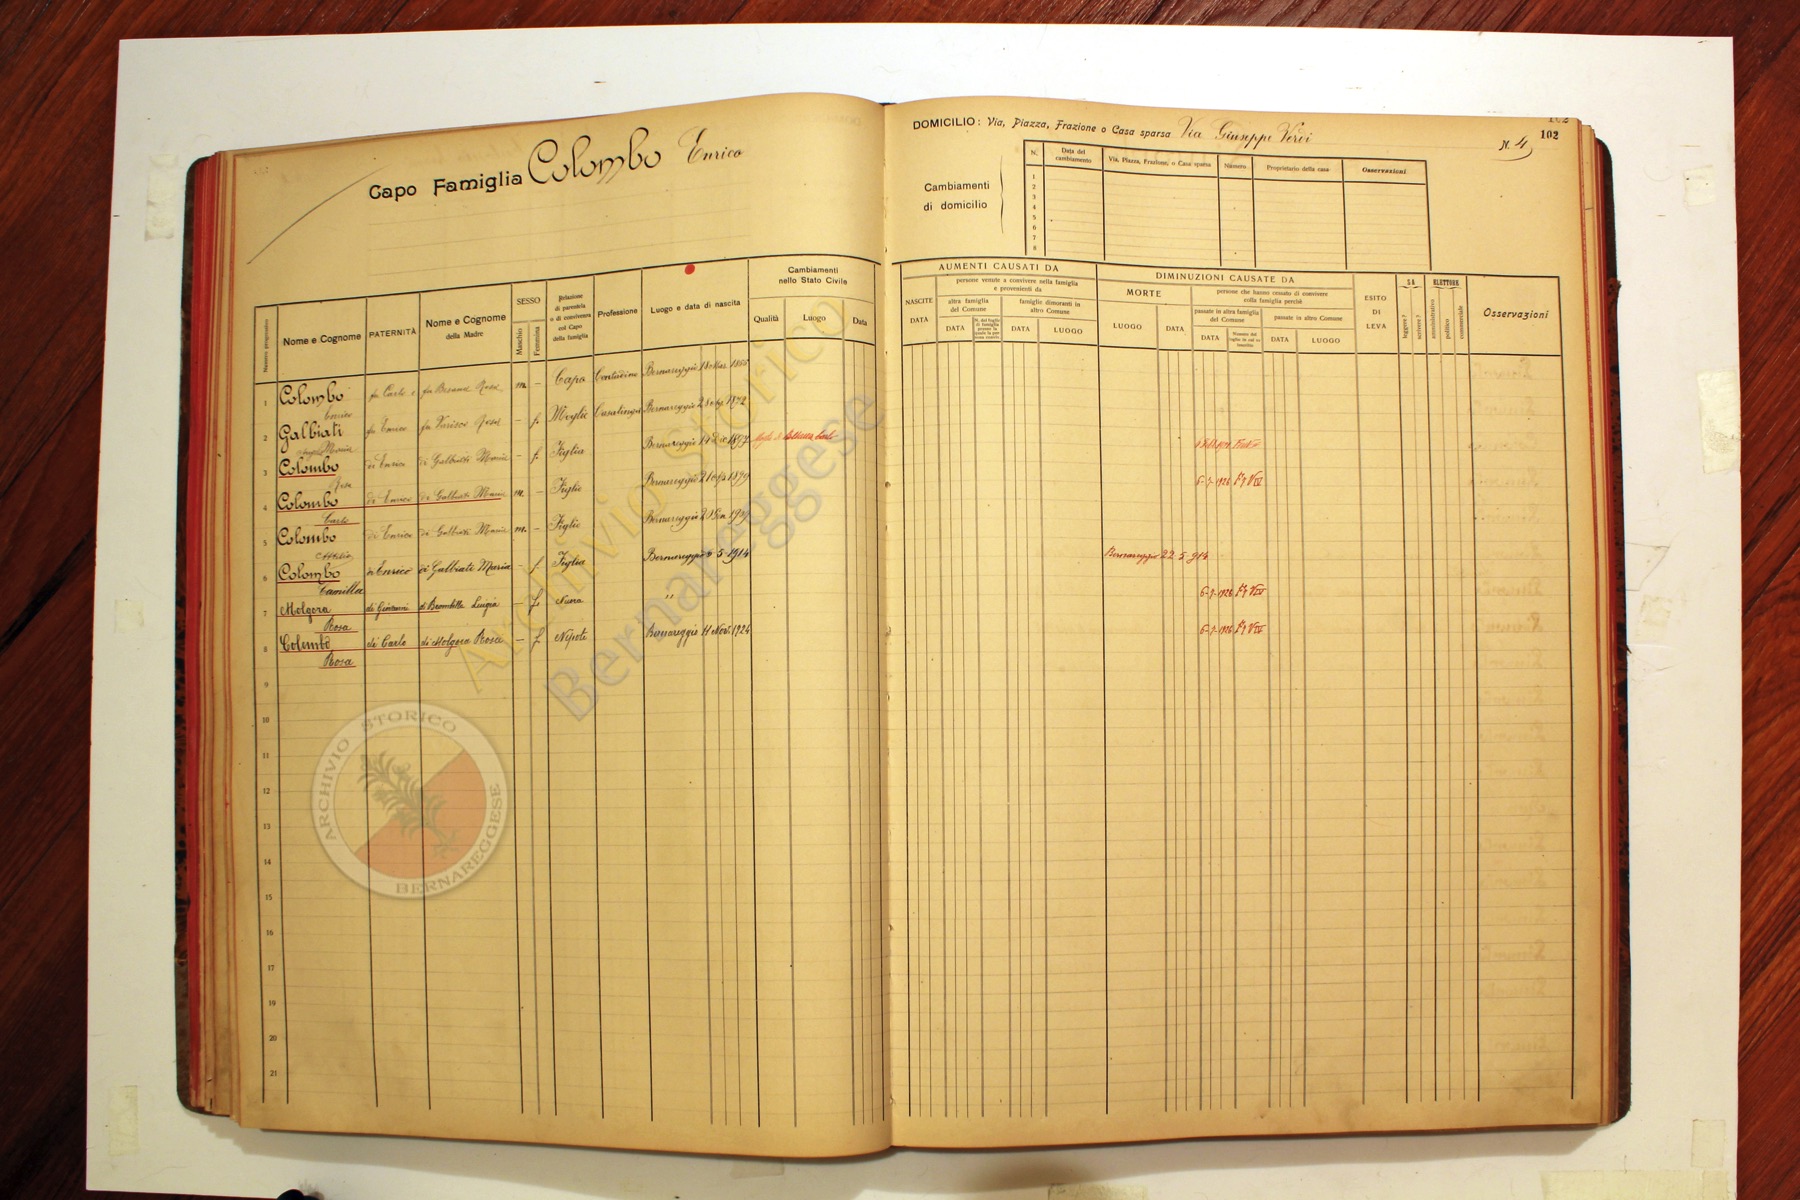 Capo Famiglia Colombo Enrico
Numero progressivo
Nome e Cognome
PATERNITÀ
Nome e Cognome
della Madre
SESSO
Maschio
Femmina
Relazione
di parentela
o di convivenza
col Capo
della famiglia
Professione
Luogo e data di nascita
Cambiamenti
nello Stato Civile
Qualità
Luogo
Data
1 Colombo fu Carlo e fu Rosa m. – Capo Contadino Bernareggio 18 1866
Enrico
2 Galbiati fu Enrico fu Varisco Rosa – f. Moglie Casalinga Bernareggio 1872
Maria
3 Colombo di Enrico di Galbiati Maria – f. Figlia Bernareggio 14 Dic 1897 Moglie di Carlo
Rosa
4 Colombo di Enrico di Galbiati Maria m. – Figlio Bernareggio 1899
Carlo
5 Colombo di Enrico di Galbiati Maria m. – Figlio Bernareggio
Attilio
6 Colombo di Enrico di Galbiati Maria – f. Figlia Bernareggio 5 1914
Camilla
7 Molgora di Giovanni di Brambilla Luigia – f. Nuora "
Rosa
8 Colombo di Carlo di Molgora Rosa – f. Nipote Bernareggio 11 Nov. 1924
Rosa
9
10
11
12
13
14
15
16
17
18
19
20
21
102
DOMICILIO: Via, Piazza, Frazione o Casa sparsa Via Giuseppe Verdi N. 4
102
Cambiamenti
di domicilio
N.
Data del
cambiamento
Via, Piazza, Frazione, o Casa sparsa
Numero
Proprietario della casa
Osservazioni
1
2
3
4
5
6
7
8
AUMENTI CAUSATI DA
NASCITE
DATA
persone venute a convivere nella famiglia
e provenienti da
altra famiglia
del Comune
DATA
famiglie dimoranti in
altro Comune
DATA
LUOGO
DIMINUZIONI CAUSATE DA
MORTE
LUOGO
DATA
persone che hanno cessato di convivere
colla famiglia perchè
passate in altra famiglia
del Comune
DATA
passate in altro Comune
DATA
LUOGO
ESITO
DI
LEVA
SA
leggere?
scrivere?
ELETTORE
amministrativo
politico
commerciale
Osservazioni
6-9-1926
Bernareggio 22-5-914
6-9-1926
6-9-1926
Archivio Storico
Bernareggese
ARCHIVIO STORICO
BERNAREGGESE